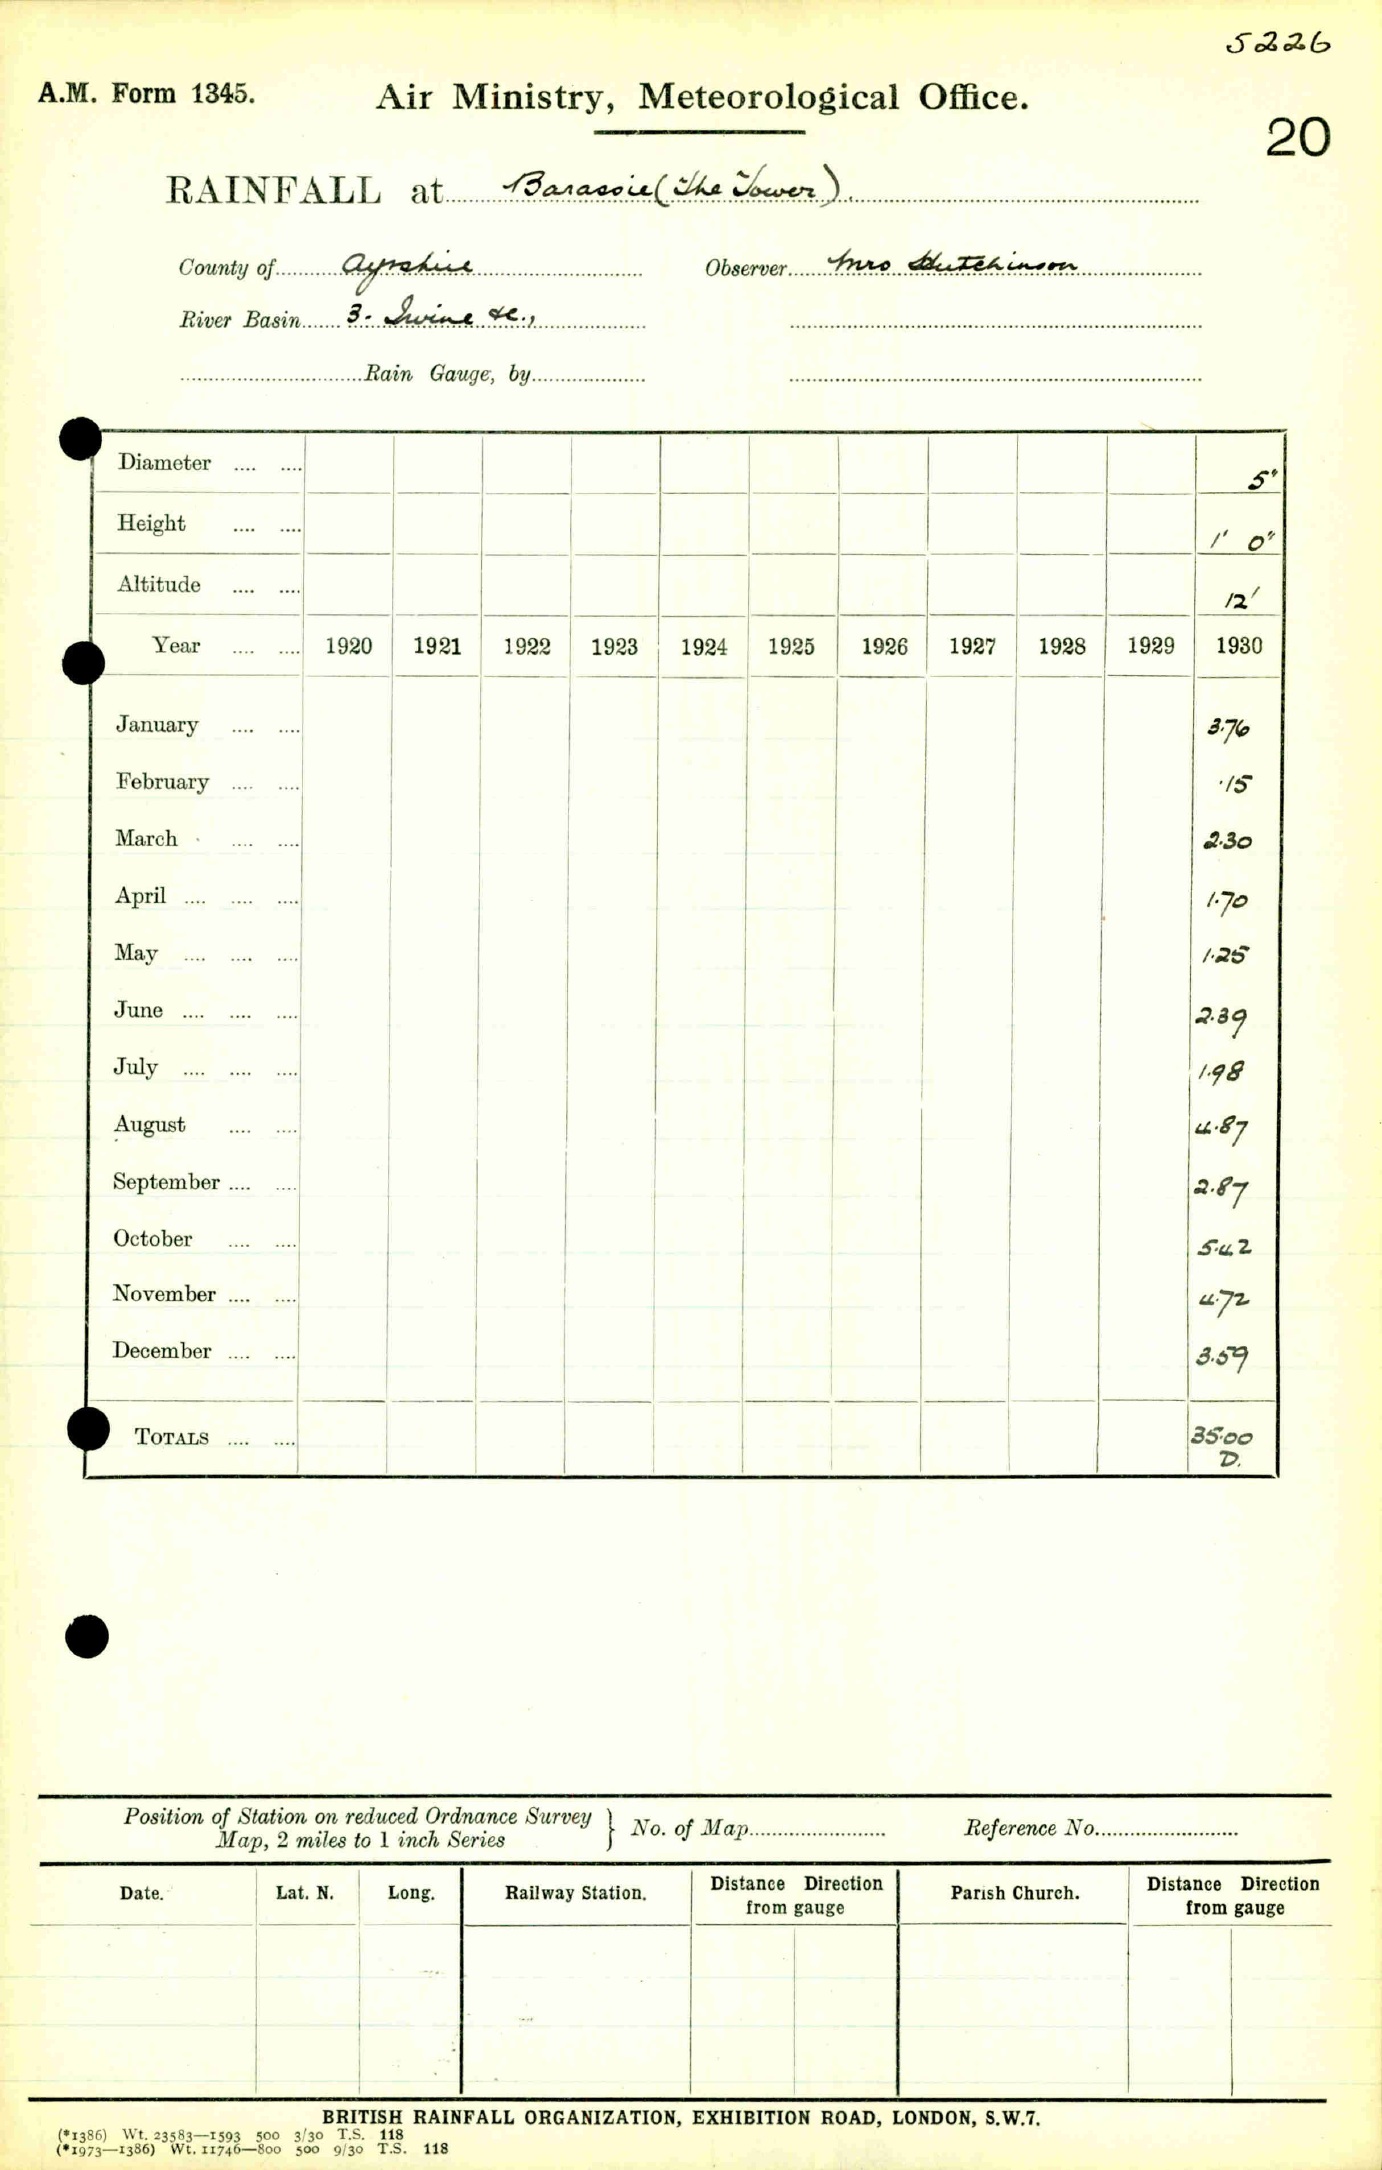 5226
A.M. Form 1345.
Air Ministry, Meteorological Office.
20
RAINFALL at Barassie (The Tower).
County of Ayrshire Observer Mrs Hutchinson
River Basin 3. Irvine &c.,
Rain Gauge, by
Diameter .... .... 5"
Height .... .... 1' 0"
Altitude .... .... 12'
Year .... .... 1920 1921 1922 1923 1924 1925 1926 1927 1928 1929 1930
January .... .... 3.76
February .... .... .15
March .... .... 2.30
April .... .... .... 1.70
May .... .... .... 1.25
June .... .... .... 2.39
July .... .... .... 1.98
August .... .... 4.87
September .... .... 2.87
October .... .... 5.42
November .... .... 4.72
December .... .... 3.59
TOTALS .... .... 35.00
D.
Position of Station on reduced Ordnance Survey
Map, 2 miles to 1 inch Series } No. of Map Reference No.
Date. Lat. N. Long. Railway Station. Distance Direction from gauge Parish Church. Distance Direction from gauge
BRITISH RAINFALL ORGANIZATION, EXHIBITION ROAD, LONDON, S.W.7.
(*1386) Wt. 23583—1593 500 3/30 T.S. 118
(*1973—1386) Wt. 11746—800 500 9/30 T.S. 118